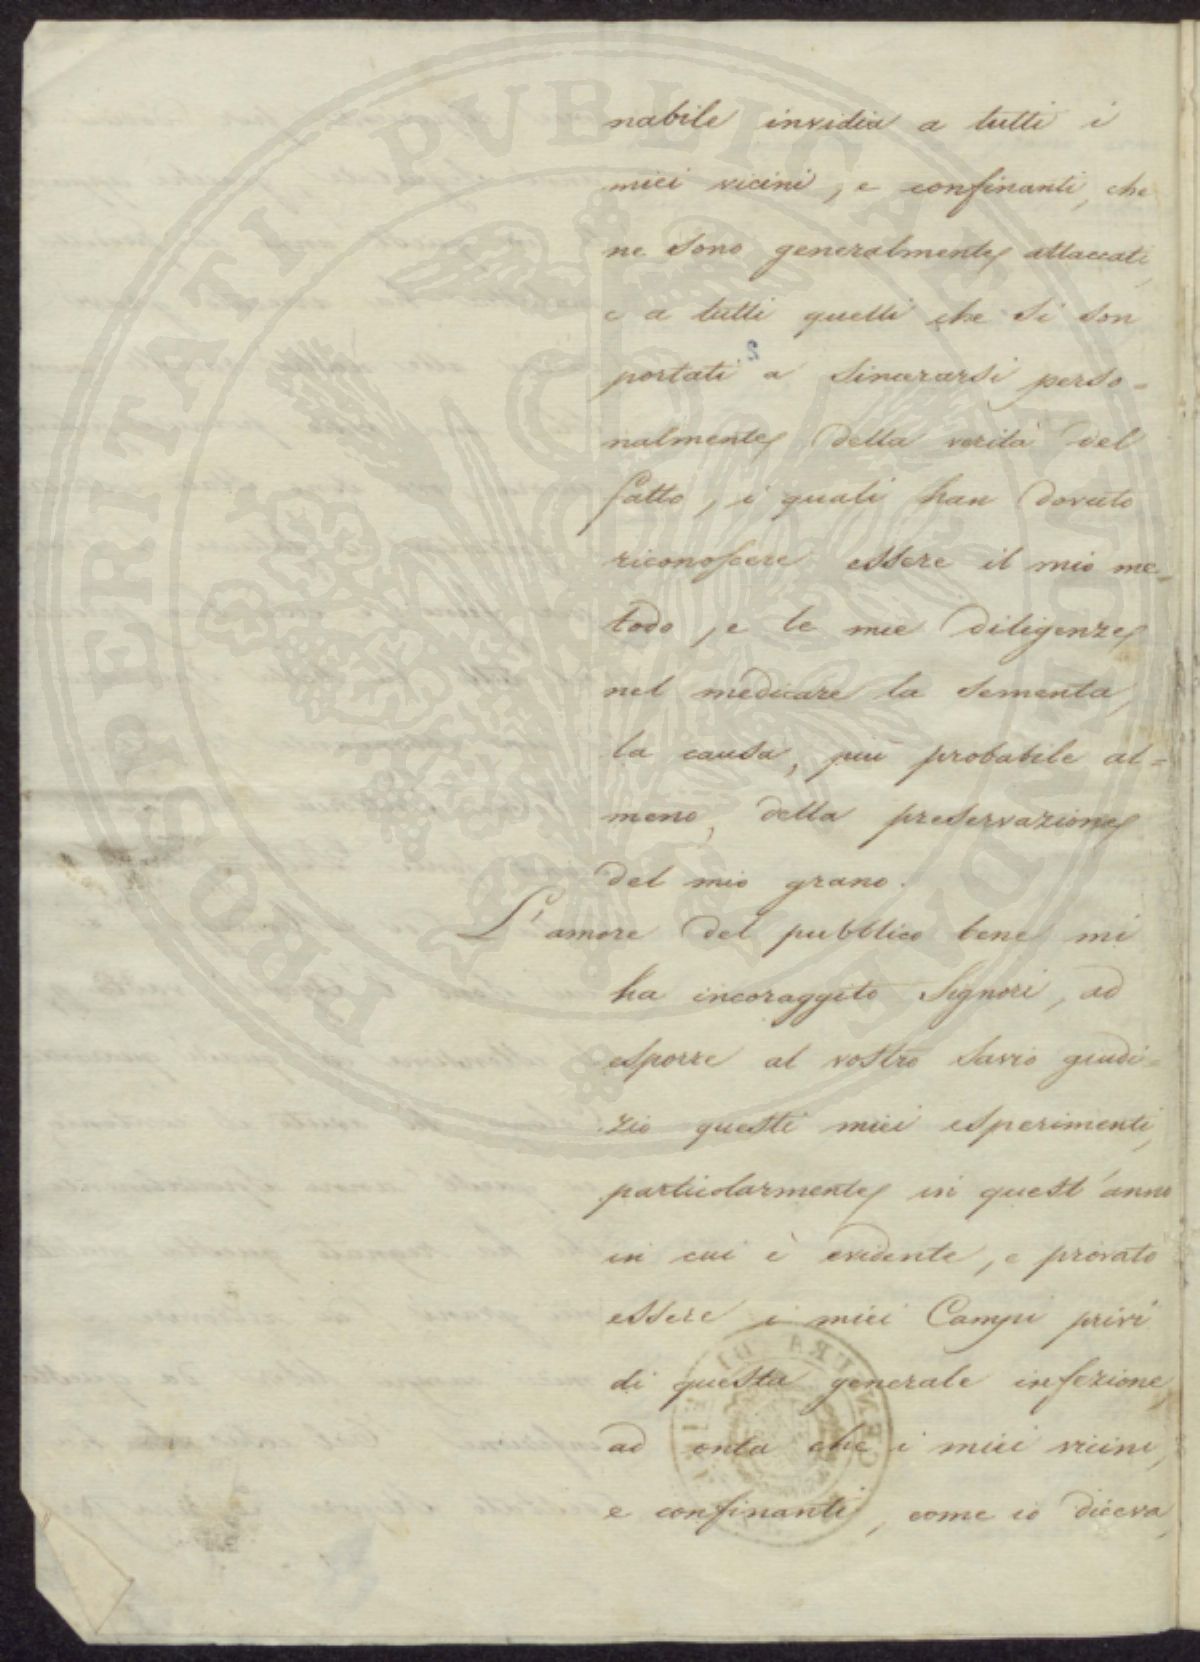 nabile invidia a tutti i
miei vicini, e confinanti, che
ne sono generalmente attaccati,
e a tutti quelli che si son
portati a sincerarsi perso=
nalmente della verità del
fatto, i quali han dovuto
riconoscere essere il mio me=
todo, e le mie diligenze
nel medicare la sementa,
la causa, più probabile al=
meno, della preservazione
del mio grano.
L'amore del pubblico bene mi
ha incoraggito Signori, ad
esporre al vostro savio giudi=
zio questi miei esperimenti,
particolarmente in quest'anno
in cui è evidente, e provato
essere i miei Campi privi
di questa generale infezione,
ad onta che i miei vicini,
e confinanti, come io diceva,
PROSPERITATI PUBLICAE AUGENDAE